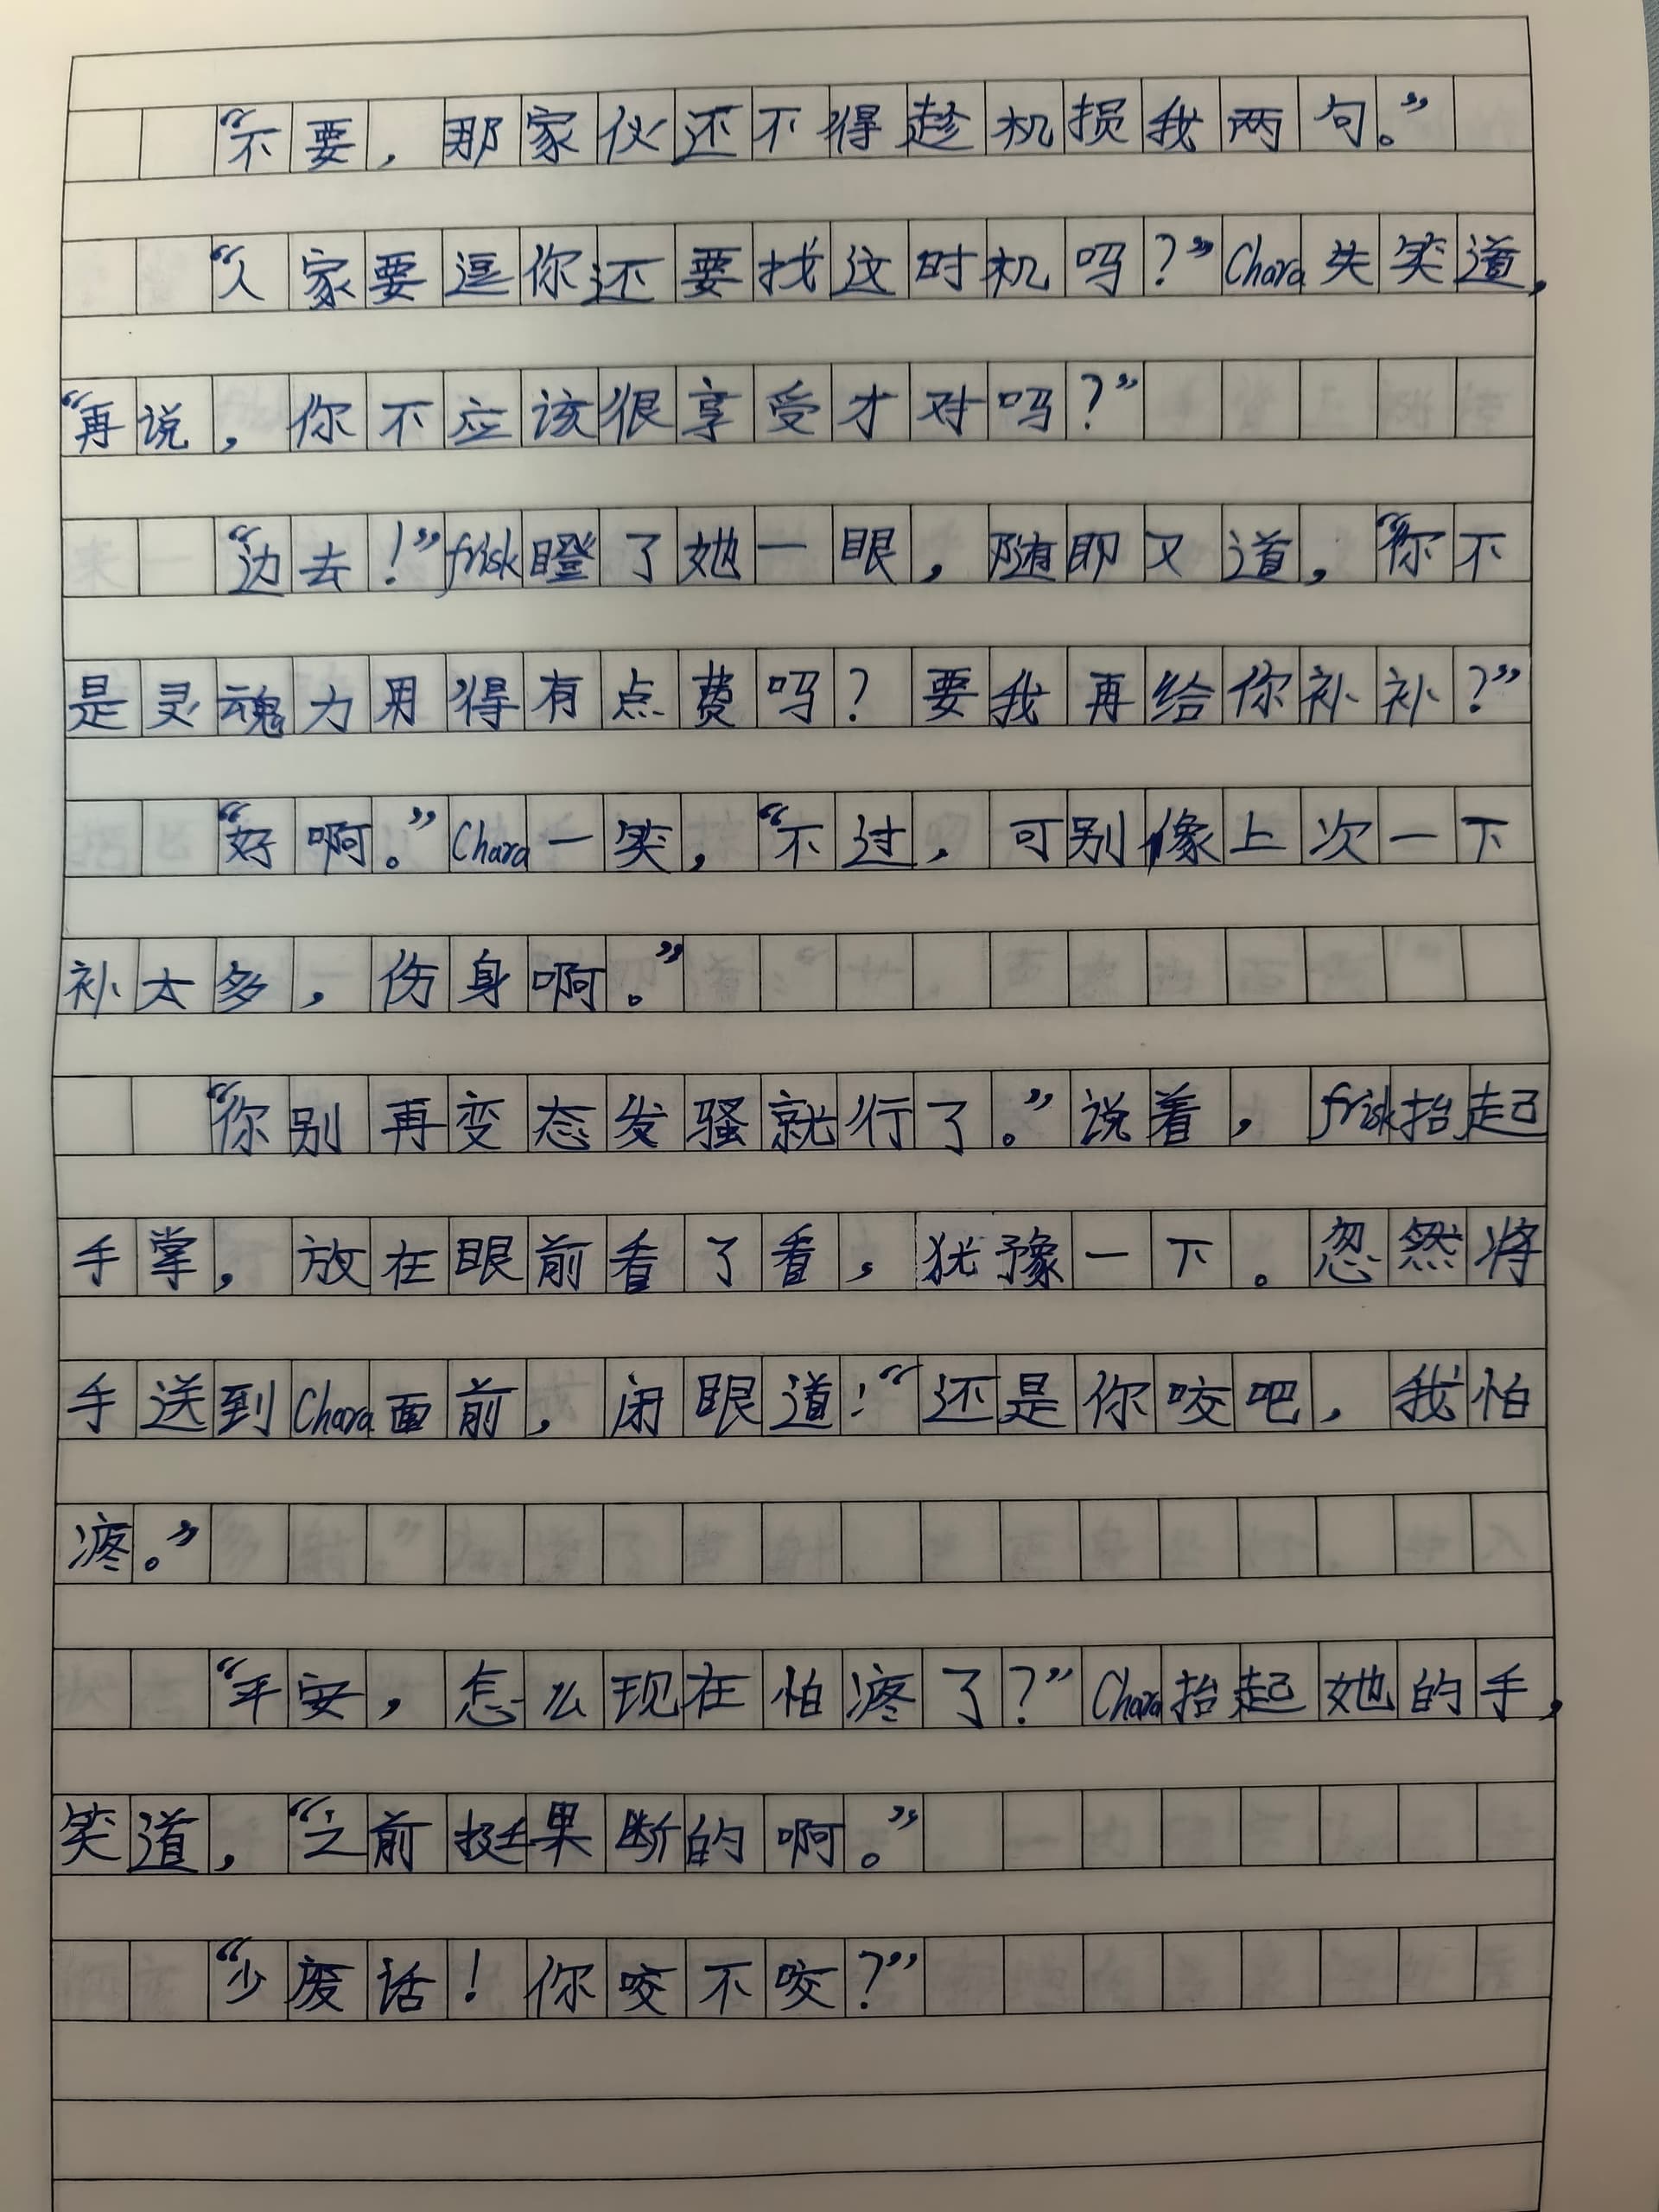 “不要，那家伙还不得趁机损我两句。”
“人家要逗你还要找这时机吗？”Chara失笑道，
“再说，你不应该很享受才对吗？”
“边去！”frisk瞪了她一眼，随即又道，“你不
是灵魂力用得有点费吗？要我再给你补补？”
“好啊。”Chara一笑，“不过，可别像上次一下
补太多，伤身啊。”
“你别再变态发骚就行了。”说着，frisk抬起
手掌，放在眼前看了看，犹豫一下。忽然将
手送到Chara面前，闭眼道：“还是你咬吧，我怕
疼。”
“平安，怎么现在怕疼了？”Chara抬起她的手，
笑道，“之前挺果断的啊。”
“少废话！你咬不咬？”